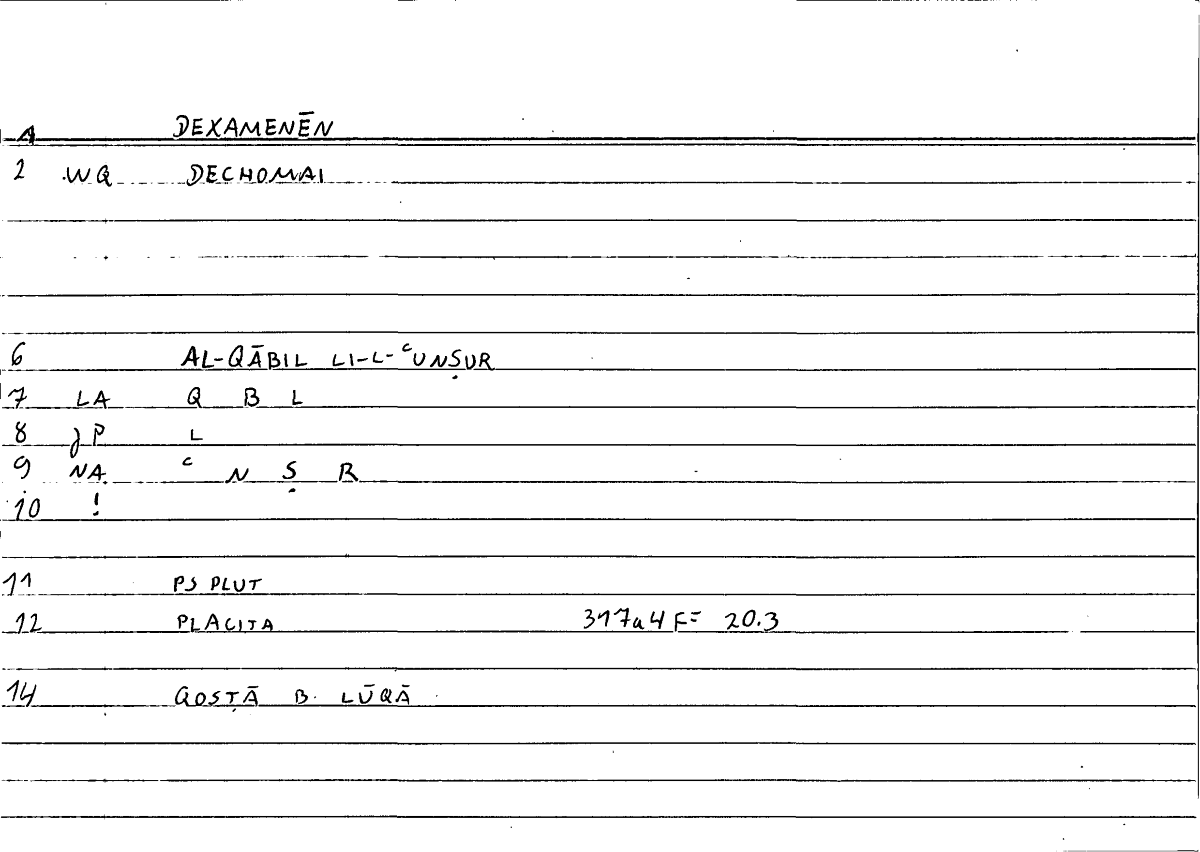 1 DEXAMENĒN
2 WQ DECHOMAI
6 AL-QĀBIL LI-L-ʿUNṢUR
7 LA Q B L
8 JP L
9 NA ʿ N Ṣ R
10 !
11 PS PLUT
12 PLACITA 317a4 F= 20.3
14 QOSṬĀ B. LŪQĀ